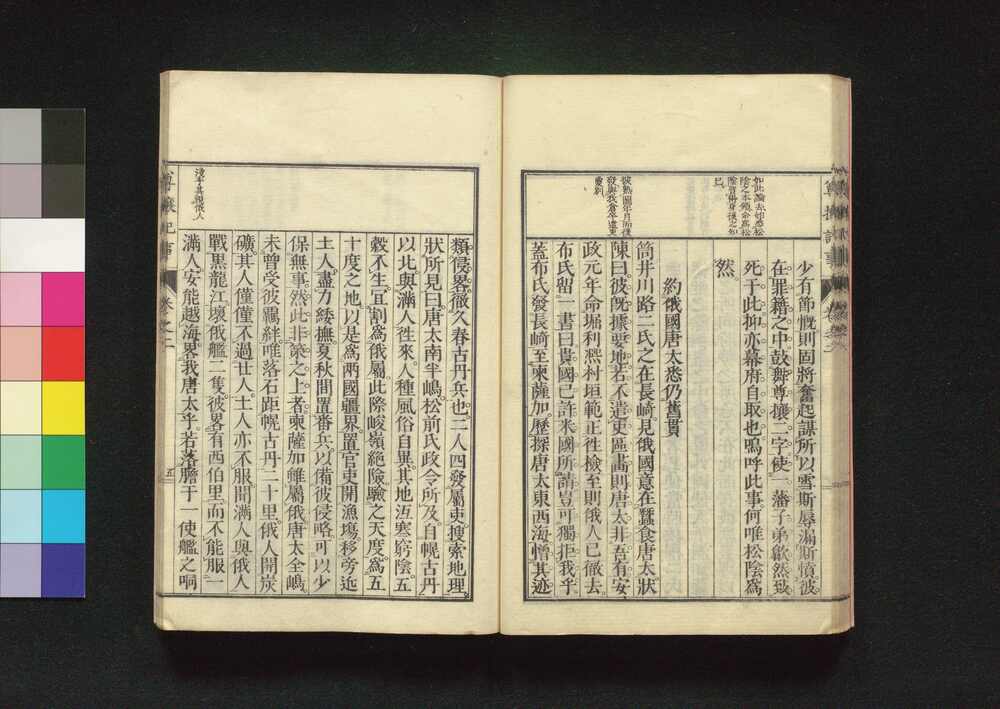 少有節慨則固將奮起謀所以雪斯辱漏斯憤彼
在罪籍之中鼓舞尊攘二字使一藩子弟歙然致
死于此抑亦幕府自取也嗚呼此事何唯松陰爲
然
約俄國唐太悉仍舊貫
筒井川路二氏之在長崎見俄國意在蠶食唐太狀
陳曰彼旣據要地若不遣吏區畫則唐太非吾有安
政元年命堀利熙村垣範正往檢至則俄人已徹去
布氏留一書曰貴國已許米國所請豈可獨拒我乎
蓋布氏發長崎至柬薩加歷探唐太東西海憎其迹
類侵畧徹久春古丹兵也二人四發屬吏搜索地理
狀所見曰唐太南半嶋松前氏政令所及自幌古丹
以北與滿人往來人種風俗自異其地沍寒窮陰五
穀不生宜割爲俄屬此際峻嶺絕險驗之天度爲五
十度之地以是爲兩國疆界置官吏開漁塲移旁近
土人盡力綏撫夏秋間置番兵以備彼侵略可以少
保無事然此非策之上者柬薩加雖屬俄唐太全嶋
未曾受彼羈絆唯落石距幌古丹二十里俄人開炭
礦其人僅僅不過廿人土人亦不服聞滿人與俄人
戰黒龍江壞俄艦二隻彼畧有西伯里而不能服一
滿人安能越海畧我唐太乎若落膽于一使艦之呞
卷之二
五